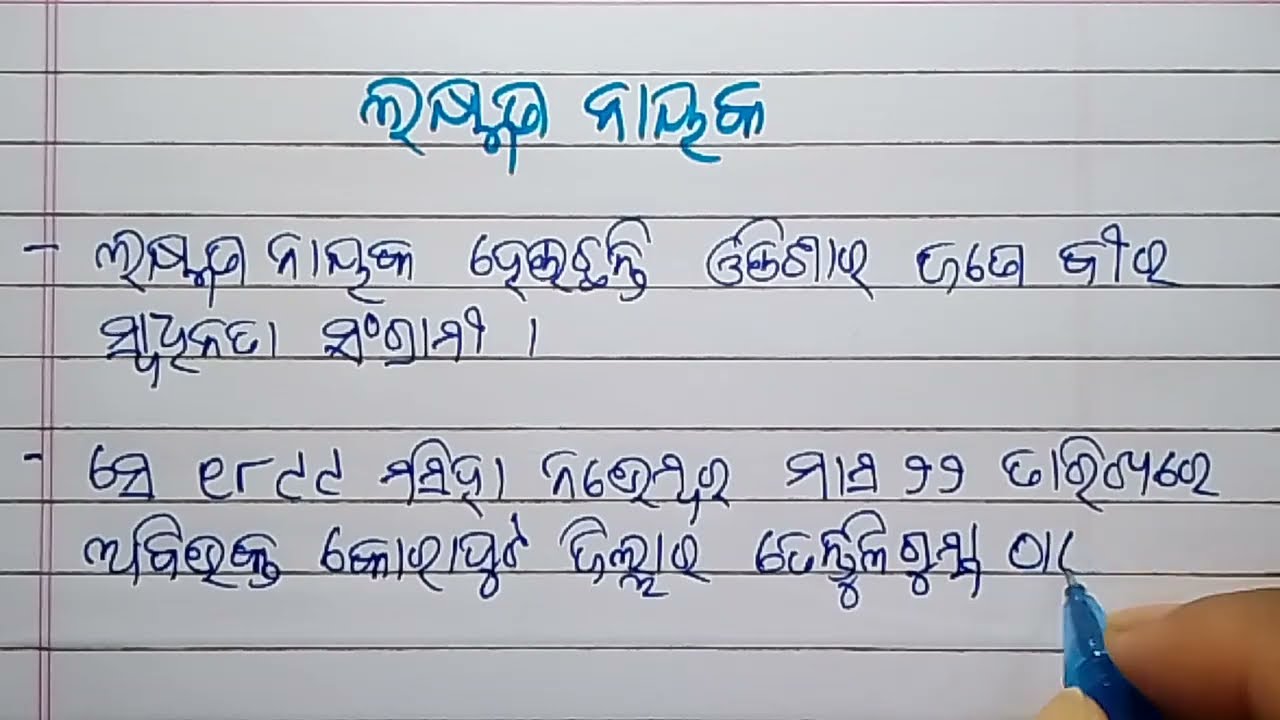 ଲକ୍ଷ୍ମଣ ନାୟକ
- ଲକ୍ଷ୍ମଣ ନାୟକ ହେଉଛନ୍ତି ଓଡିଶାର ଜଣେ ବୀର
ସ୍ୱାଧିନତା ସଂଗ୍ରାମୀ ।
- ସେ ୧୮୯୯ ମସିହା ନଭେମ୍ବର ମାସ ୨୨ ତାରିଖରେ
ଅବିଭକ୍ତ କୋରାପୁଟ ଜିଲ୍ଲାର ତେନ୍ତୁଳିଗୁମ୍ମା ଠା